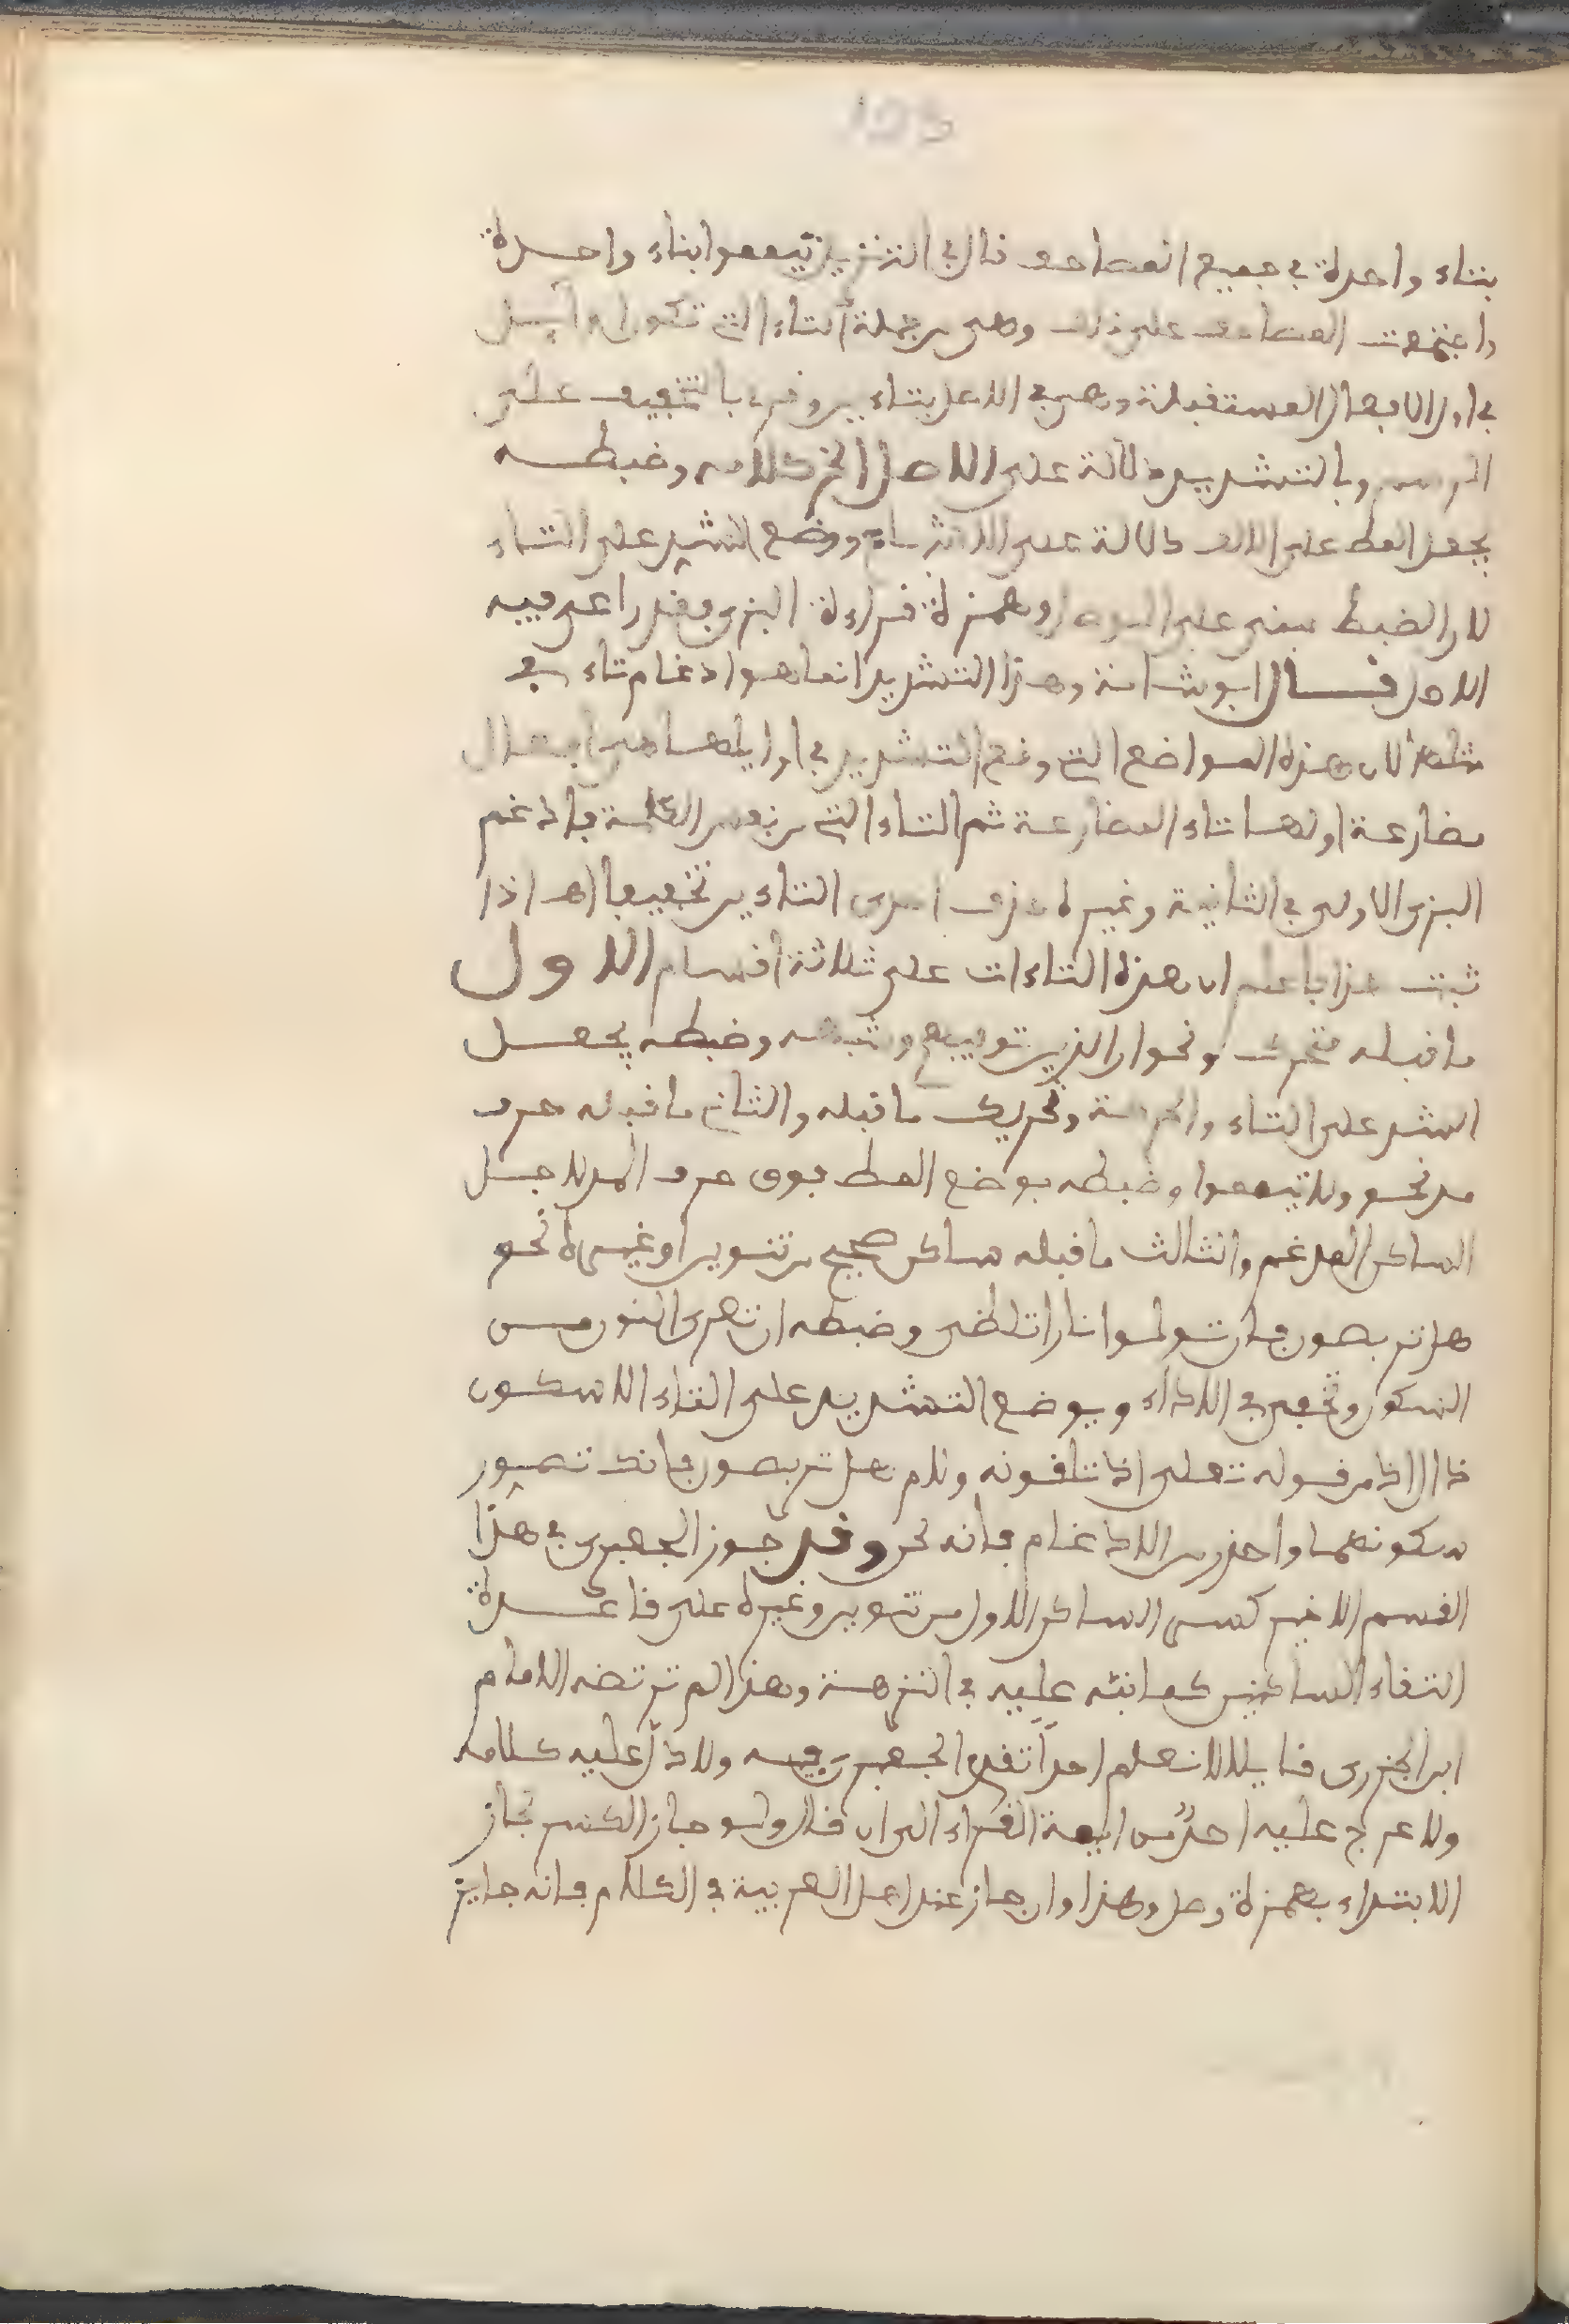 بتاء واحدة في جميع المصاحف قال في التنزيل تيمموا بتاء واحدة
واجتمعت المصاحف على ذلك وهي من جملة التاء التي تكون اوايل
في اول الافعال المستقبلة وهي في الاصل بتاءين وقرى بالتخفيف على
الرسم وبالتشديد دلالة على الاصل الخ كلامه وضبطه
يجعل المط على الالف دلالة على الاشباع ووضع الشد على التاء
لان الضبط مبني على الوصل وهمزة قراءة البزي فقد راعى فيه
الاصل قال ابو شامة وهذا التشديد انما هو ادغام تاء في
مثلها لان هذه المواضع التي وقع التشديد في اوايلها هي افعال
مضارعة اولها تاء المضارعة ثم التاء التي من نفس الكلمة فادغم
البزي الاولى في الثانية وغيره حذف احدى التاءين تخفيفا اهـ اذا
ثبت هذا فاعلم ان هذه التاءات على ثلاثة اقسام الاول
ما قبله متحرك ونحو ان الذين توفيهم وشبهه وضبطه يجعل
الشد على التاء والحركة وتحريك ما قبله والثاني ما قبله حرف
مد نحو ولا تيمموا وضبطه بوضع المط فوق حرف المد لاجل
الساكن المدغم والثالث ما قبله ساكن صحيح من تنوين او غيره نحو
هل تربصون فان تولوا نارا تلظى وضبطه ان تعرى النون من
السكون وتخفى في الاداء ويوضع التشديد على التاء الا سكون
ذال اذ من قوله تعلى اذ تلقونه ولام هل تربصون فانك تصور
سكونهما واحذر من الادغام فانه لحن وقد جوز الجعبري في هذا
القسم الاخير كسر الساكن الاول من تنوين وغيره على قاعدة
التقاء الساكنين كما نبه عليه في النزهة وهذا لم ترتضه الامام
ابن الجزري قايلا لا نعلم احدا تقدم الجعبري فيه ولا دل عليه كلامه
ولا عرج عليه احد من ايمة القراء الى ان قال ولو جاز الكسر لجاز
الابتداء بهمزة وصل وهذا وان جاز عند اهل العربية في الكلام فانه جايز